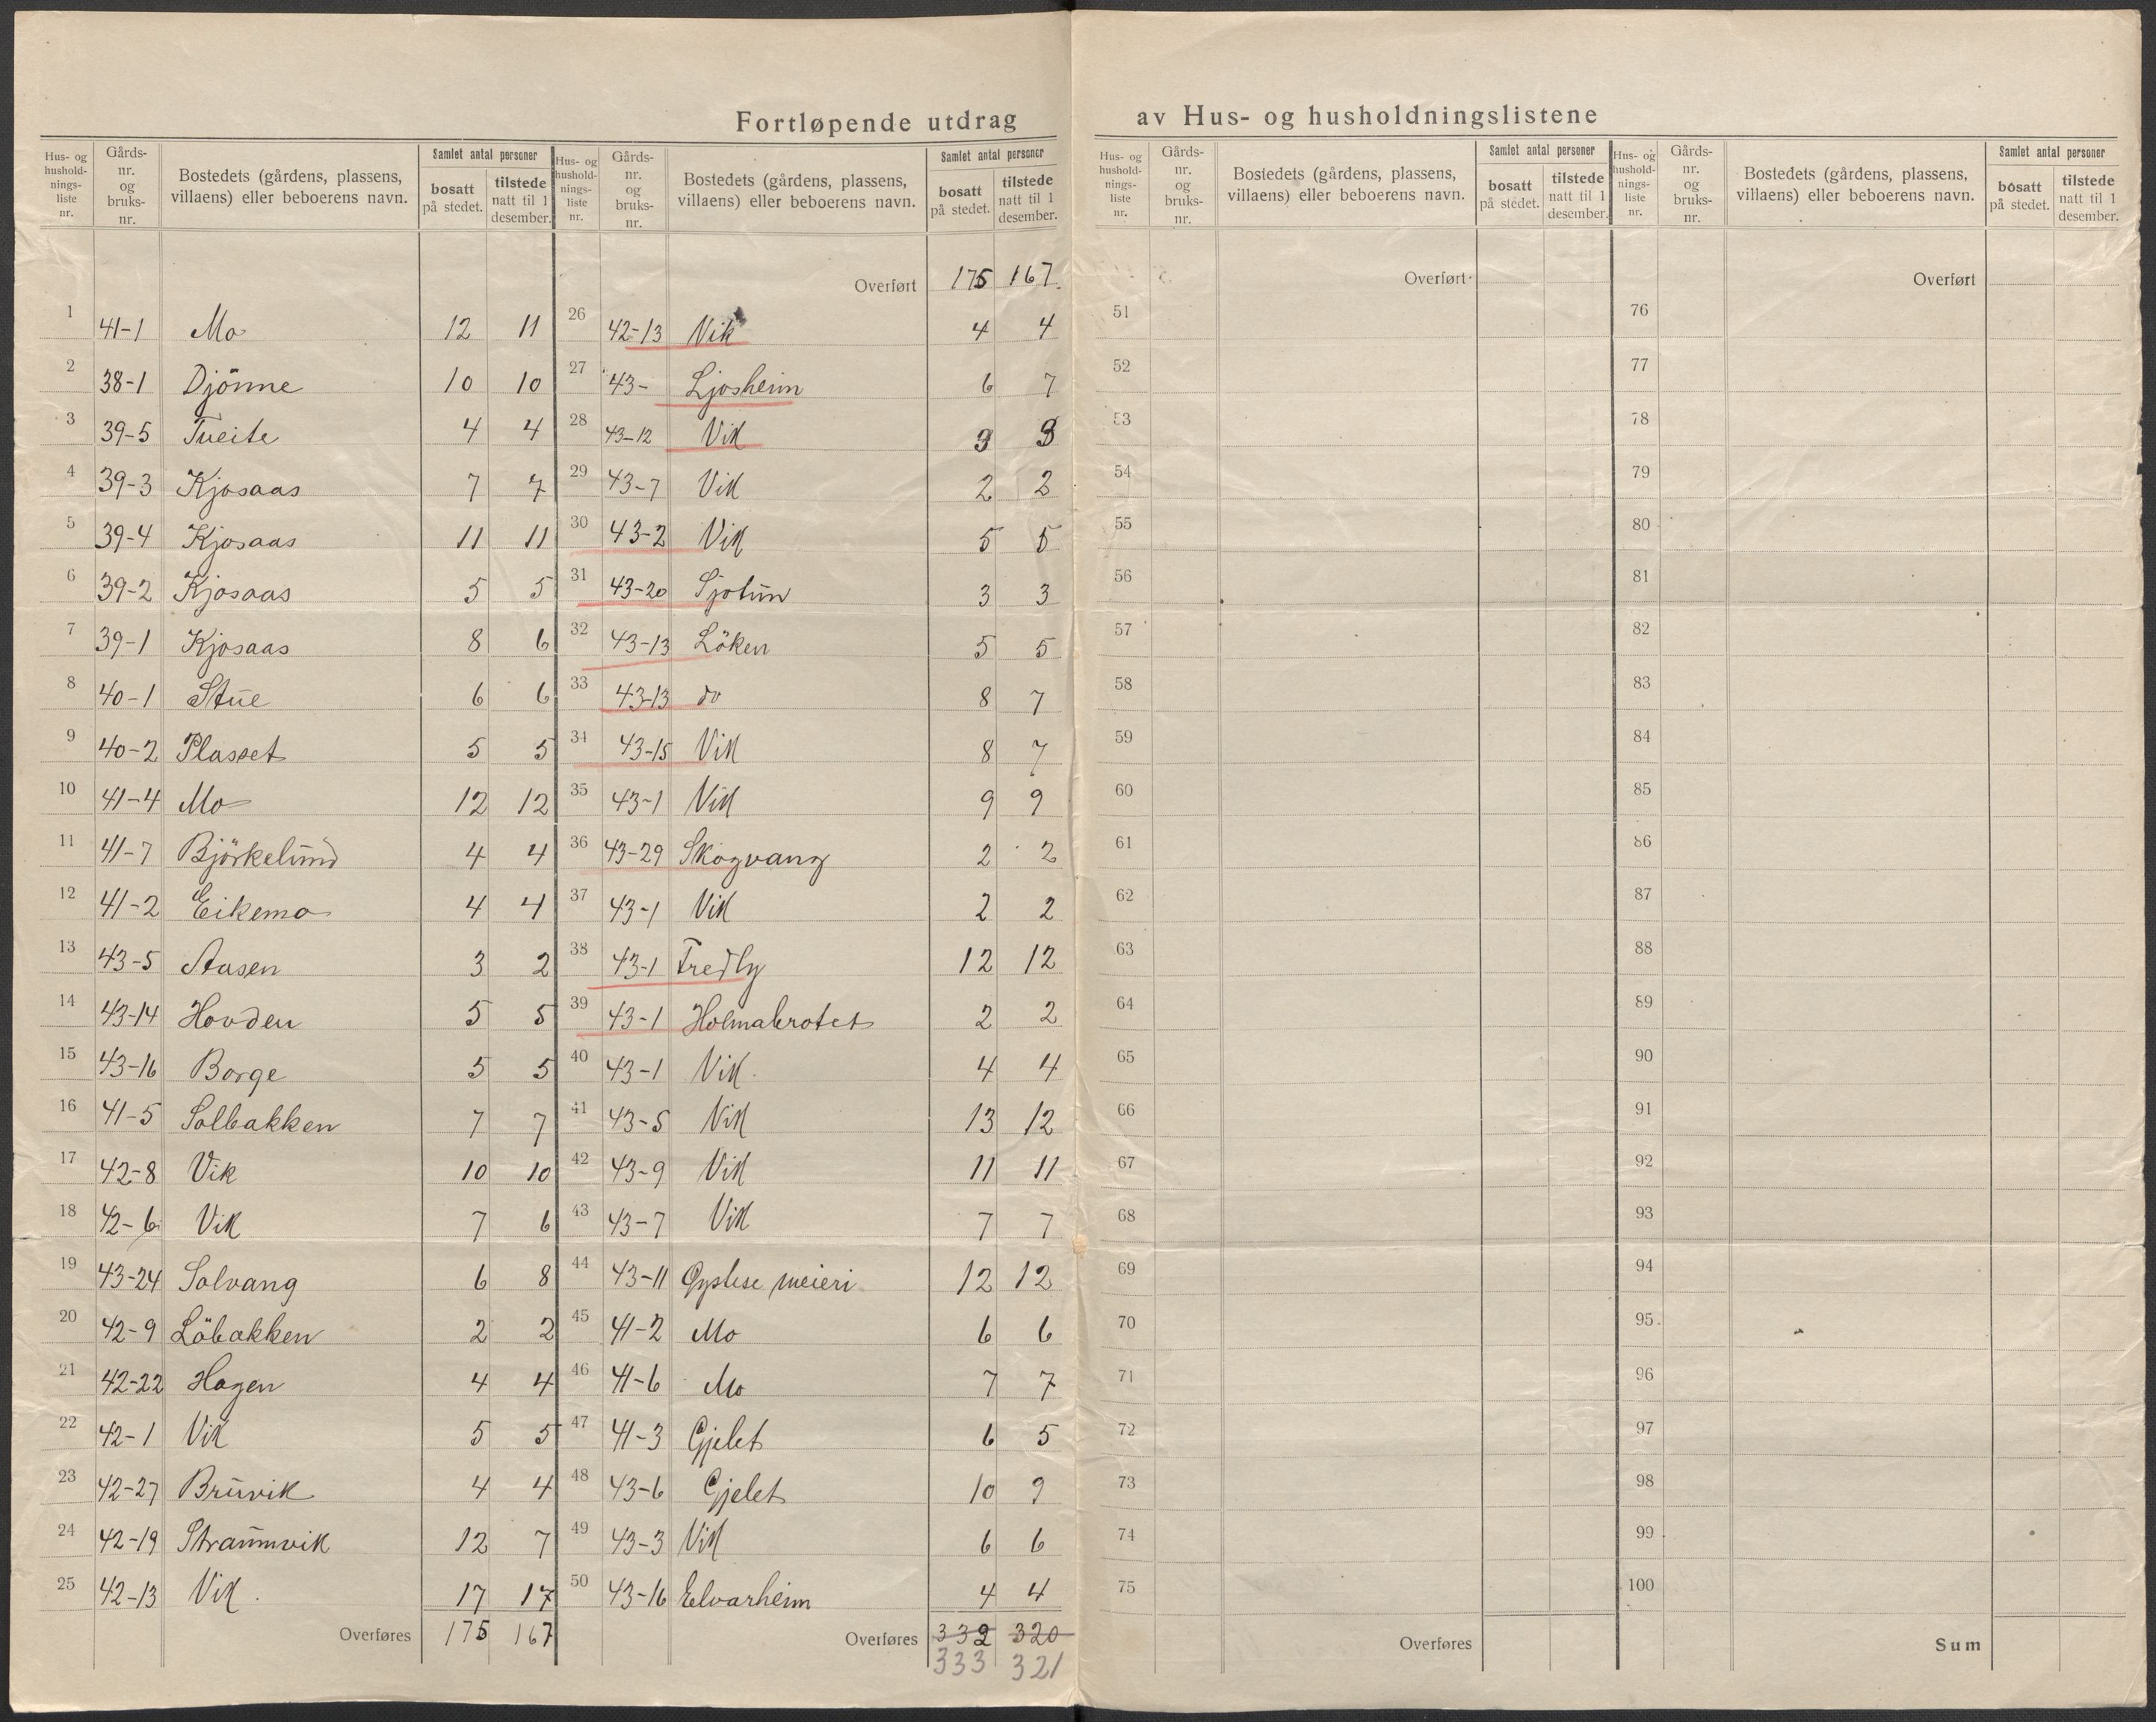 Fortløpende utdrag av Hus- og husholdningslistene
Hus- og hushold-nings-liste nr. | Gårds-nr. og bruks-nr. | Bostedets (gårdens, plassens, villaens) eller beboerens navn. | Samlet antal personer | bosatt på stedet. | tilstede natt til 1 desember.
1 41-1 Mo 12 11
2 38-1 Djönne 10 10
3 39-5 Tveite 4 4
4 39-3 Kjosaas 7 7
5 39-4 Kjosaas 11 11
6 39-2 Kjosaas 5 5
7 39-1 Kjosaas 8 6
8 40-1 Stue 6 6
9 40-2 Plasset 5 5
10 41-4 Mo 12 12
11 41-7 Björkelund 4 4
12 41-2 Eikemo 4 4
13 43-5 Aasen 3 2
14 43-14 Hovden 5 5
15 43-16 Borge 5 5
16 41-5 Solbakken 7 7
17 42-8 Vik 10 10
18 42-6 Vik 7 6
19 43-24 Solvang 6 8
20 42-9 Löbakken 2 2
21 42-22 Hagen 4 4
22 42-1 Vik 5 5
23 42-27 Bruvik 4 4
24 42-19 Straumvik 12 7
25 42-13 Vik. 17 17
Overføres 175 167
Hus- og hushold-nings-liste nr. | Gårds-nr. og bruks-nr. | Bostedets (gårdens, plassens, villaens) eller beboerens navn. | Samlet antal personer | bosatt på stedet. | tilstede natt til 1 desember.
Overført 175 167.
26 42-13 Vik 4 4
27 43- Ljosheim 6 7
28 43-12 Vik
29 43-7 Vik 2 2
30 43-2 Vik 5 5
31 43-20 Sjotun 3 3
32 43-13 Löken 5 5
33 43-13 do 8 7
34 43-15 Vik 8 7
35 43-1 Vik 9 9
36 43-29 Skogvang 2 2
37 43-1 Vik 2 2
38 43-1 Fredly 12 12
39 43-1 Holmabrotet 2 2
40 43-1 Vik. 4 4
41 43-5 Vik 13 12
42 43-9 Vik 11 11
43 43-7 Vik 7 7
44 43-11 meieri 12 12
45 41-2 Mo 6 6
46 41-6 Mo 7 7
47 41-3 Gjelet 6 5
48 43-6 Gjelet 10 9
49 43-3 Vik 6 6
50 43-16 Elvarheim 4 4
Overføres 332 320
333 321
Hus- og hushold-nings-liste nr. | Gårds-nr. og bruks-nr. | Bostedets (gårdens, plassens, villaens) eller beboerens navn. | Samlet antal personer | bosatt på stedet. | tilstede natt til 1 desember.
Overført
51
52
53
54
55
56
57
58
59
60
61
62
63
64
65
66
67
68
69
70
71
72
73
74
75
Overføres
Hus- og hushold-nings-liste nr. | Gårds-nr. og bruks-nr. | Bostedets (gårdens, plassens, villaens) eller beboerens navn. | Samlet antal personer | bosatt på stedet. | tilstede natt til 1 desember.
Overført
76
77
78
79
80
81
82
83
84
85
86
87
88
89
90
91
92
93
94
95
96
97
98
99
100
Sum